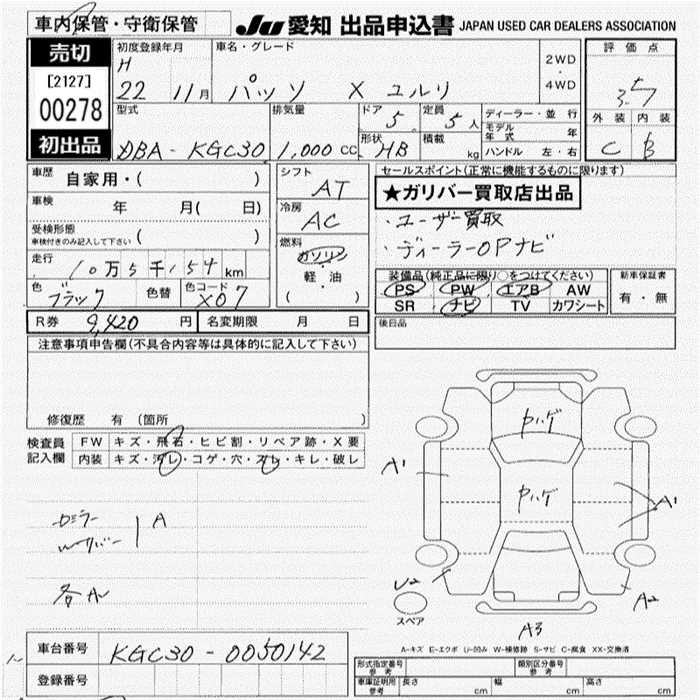 車内保管・守衛保管
JU 愛知 出品申込書 JAPAN USED CAR DEALERS ASSOCIATION
売切
[2127]
00278
初出品
初度登録年月
H
22 11月
車名・グレード
パッソ X ユルリ
2WD
・
4WD
評価点
3.5
外装 内装
C B
型式
DBA-KGC30
排気量
1,000 cc
ドア
5
形状
HB
定員
5人
積載
kg
ディーラー・並行
モデル年式 年
ハンドル 左・右
車歴 自家用・( )
車検 年 月( 日)
受検形態
車検付きのみ記入して下さい ( )
走行
10万5千154km
色
ブラック
色替
色コード
X07
シフト
AT
冷房
AC
燃料
ガソリン
・
軽・油
( )
セールスポイント(正常に機能するものに限ります)
★ガリバー買取店出品
・ユーザー買取
・ディーラーOPナビ
装備品(純正品に限り○をつけてください)
PS PW エアB AW
SR ナビ TV カワシート
新車保証書
有・無
後日品
R券 9,420円
名変期限 月 日
注意事項申告欄(不具合内容等は具体的に記入して下さい)
修復歴 有 (箇所 )
検査員記入欄
FW キズ・飛石・ヒビ割・リペア跡・X要
内装 キズ・汚レ・コゲ・穴・スレ・キレ・破レ
A
各A
ヤハゲ
ヤハゲ
A1
A1
U2
A2
A3
スペア
A-キズ E-エクボ U-凹み W-補修跡 S-サビ C-腐食 XX-交換済
車台番号 KGC30-0050142
登録番号
形式指定番号
参考
類別区分番号
参考
車庫証明用
参考
長さ cm 幅 cm 高さ cm